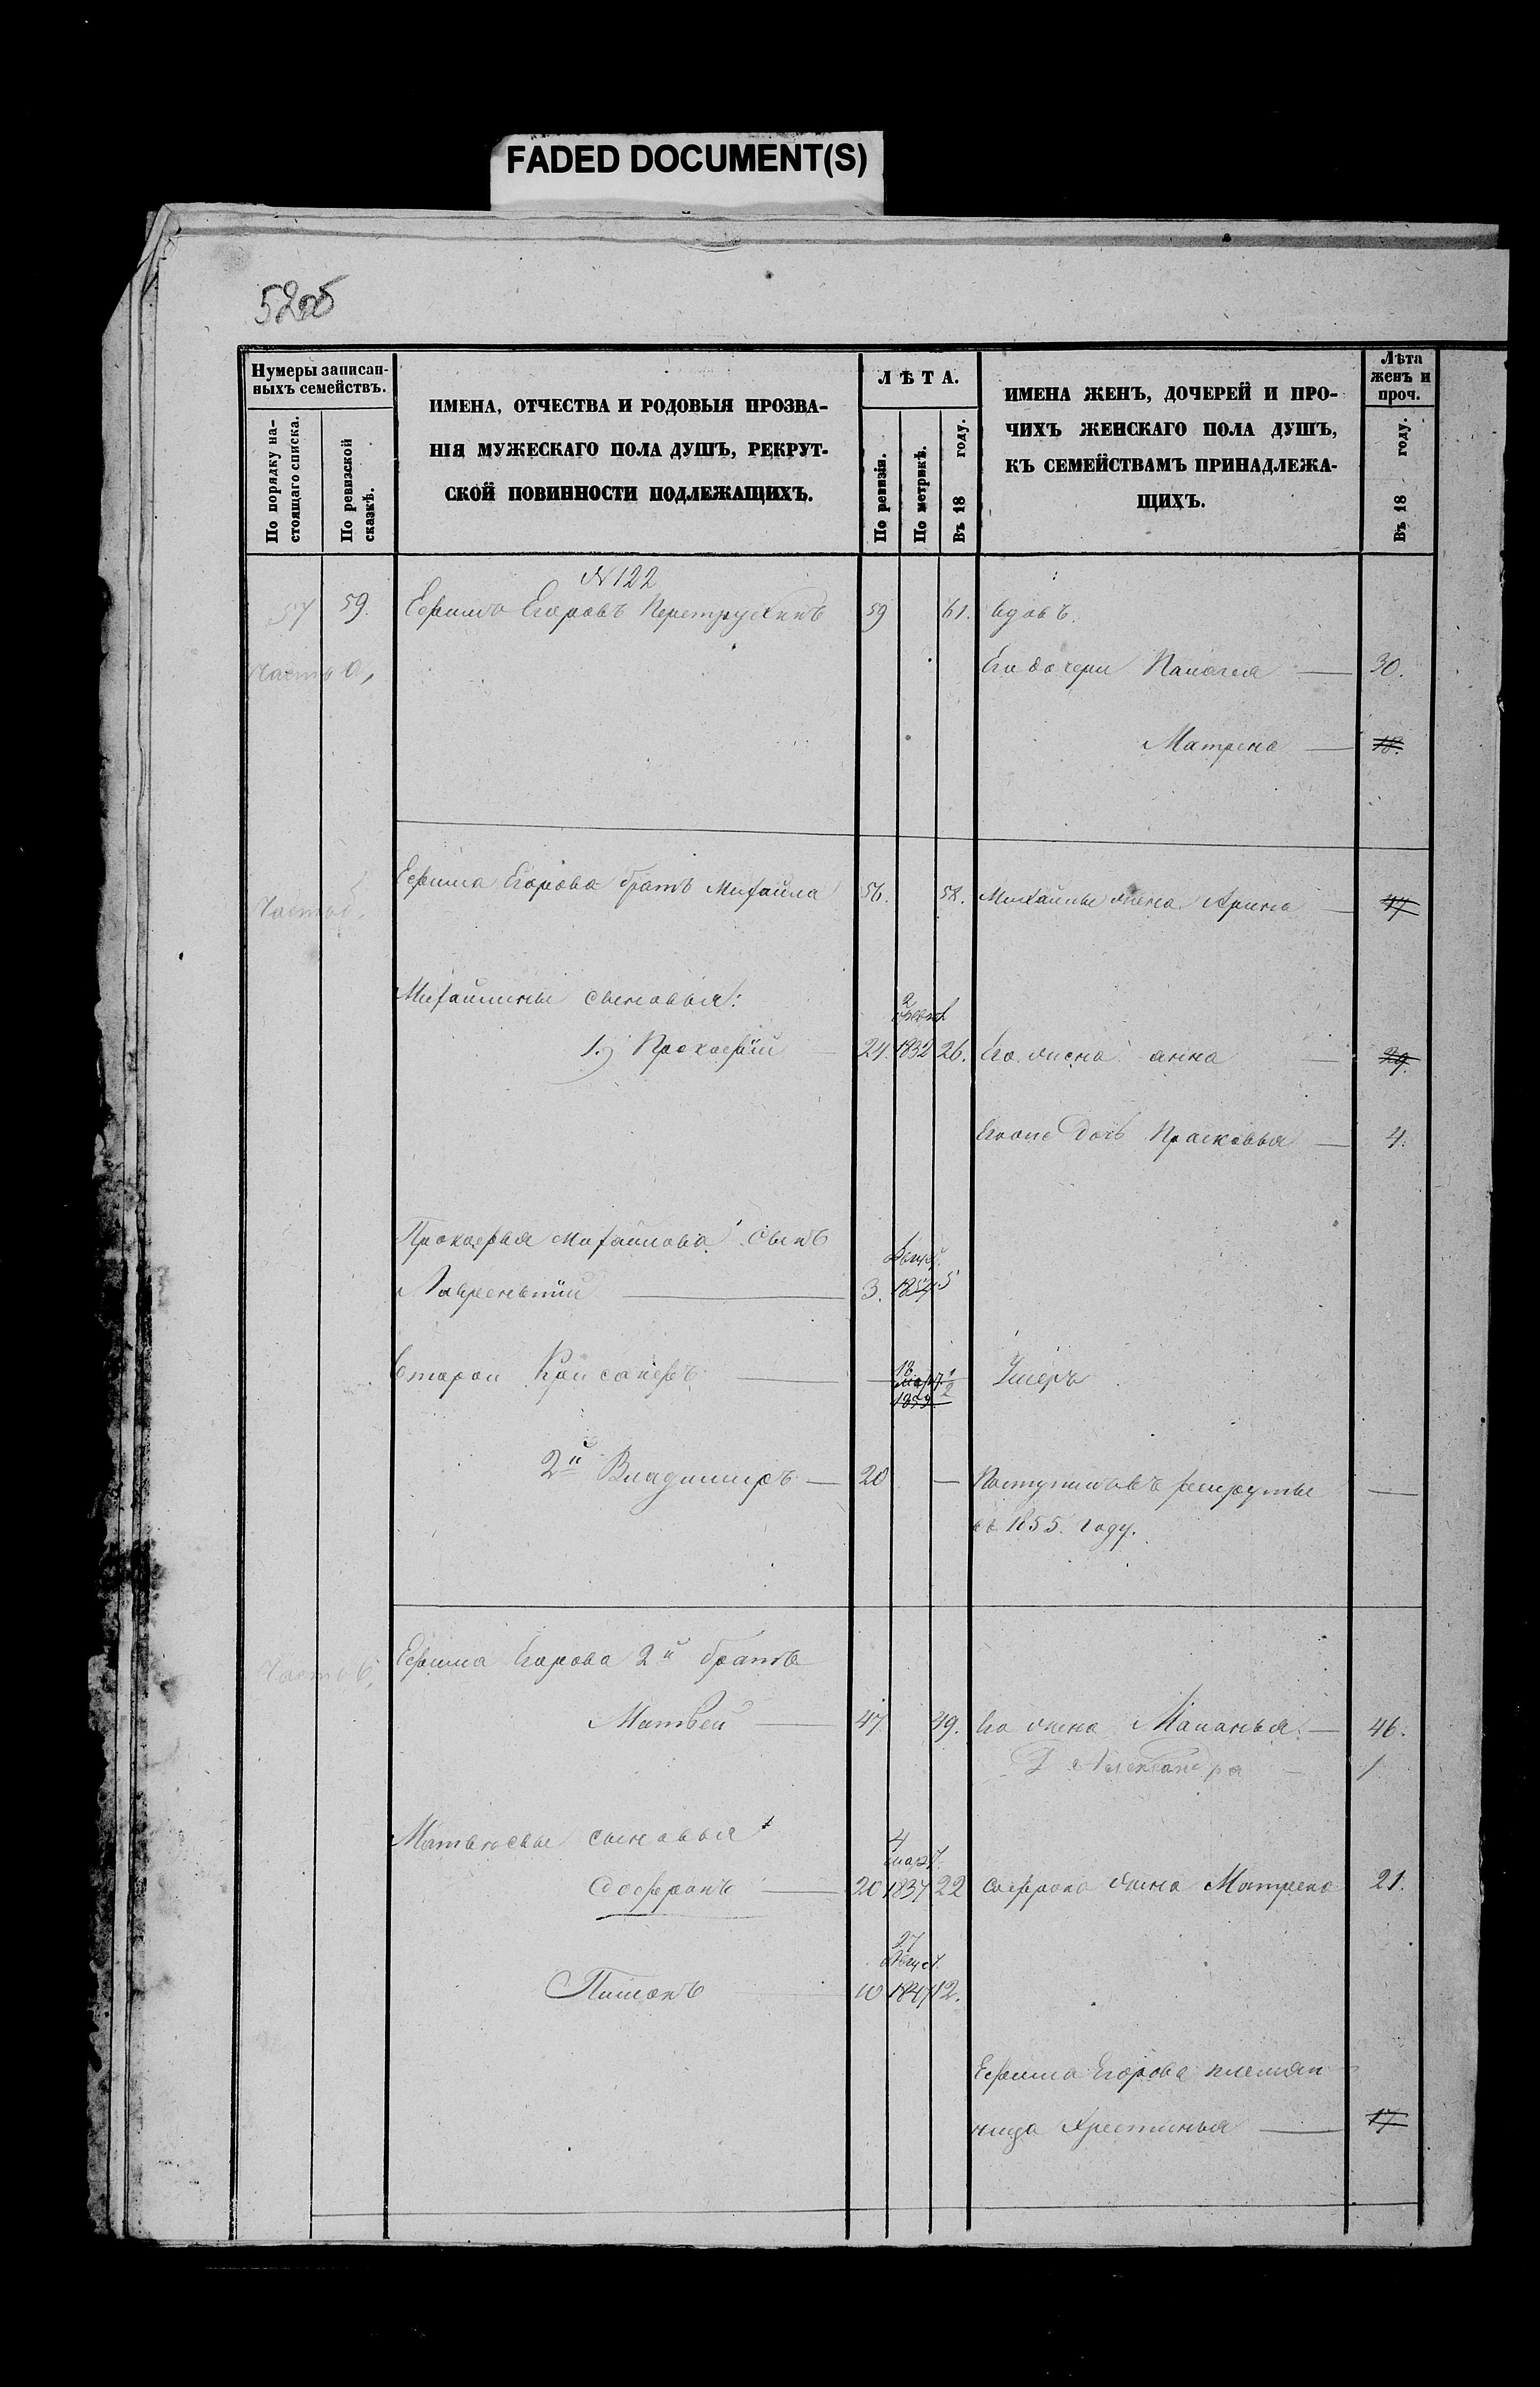 FADED DOCUMENT(S)
52об
Нумеры записан-
ныхъ семействъ.
По порядку на-
стоящаго списка.
По ревизской
сказкѣ.
ИМЕНА, ОТЧЕСТВА И РОДОВЫЯ ПРОЗВА-
НІЯ МУЖЕСКАГО ПОЛА ДУШЪ, РЕКРУТ-
СКОЙ ПОВИННОСТИ ПОДЛЕЖАЩИХЪ.
ЛѢТА.
По ревизіи.
По метрикѣ.
Въ 18 году.
ИМЕНА ЖЕНЪ, ДОЧЕРЕЙ И ПРО-
ЧИХЪ ЖЕНСКАГО ПОЛА ДУШЪ,
КЪ СЕМЕЙСТВАМЪ ПРИНАДЛЕЖА-
ЩИХЪ.
Лѣта
женъ и
проч.
Въ 18 году.
№ 122
57 59. Ефимъ Егоровъ 59 61. вдовъ.
Часть а, Его дочери Палагея 30.
Матрена 18.
Часть б. Ефима Егорова братъ Михайла 56. 58. Михайлы жена Арина 47
Михайлины сыновья:
2
1.) Прокофій 24. 1832 26. Его жена анна 29.
Егоже дочь Прасковья 4.
Прокофья Михайлова сынъ
Август
Лаврентій 3. 1854 5
18
Второй март Умеръ
2й Владимиръ 20 Поступилъ въ рекруты
въ 1855. году.
Часть в, Ефима Егорова 2й братъ
Матвей 47 49. Его жена Маланья 46.
Д Александра 1
Матвеевы сыновья
4
март
Софронъ 20 1837 22 Софрона жена Матрена 21.
27
Август
Пименъ 10 1847 12.
Ефима Егорова племян-
ница Хрестинья 17